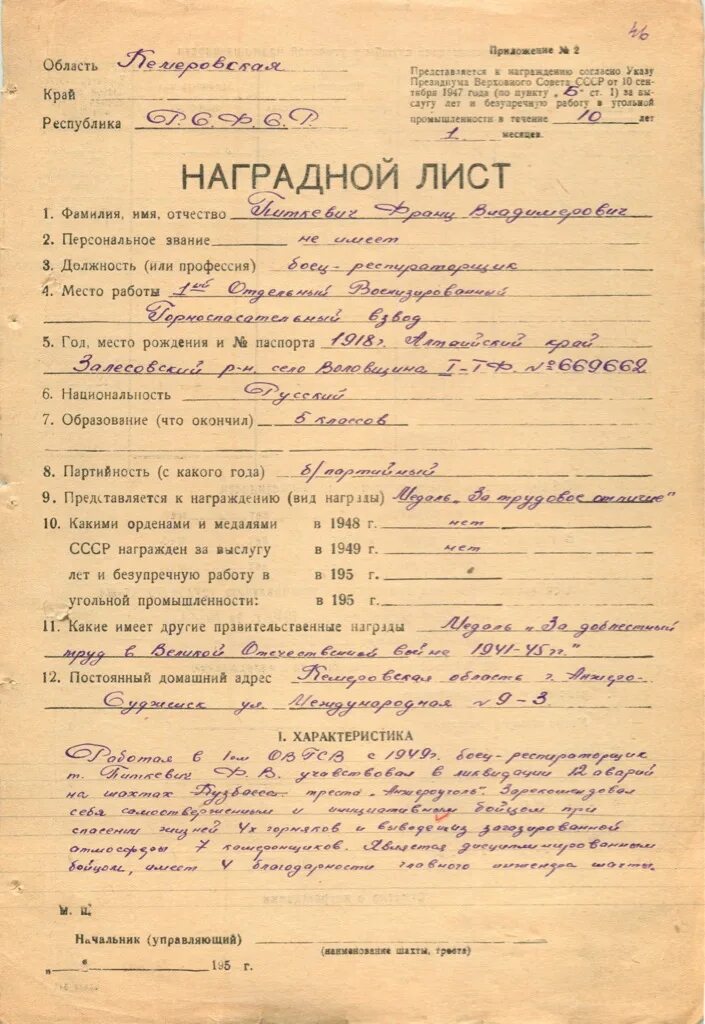 46
Приложение № 2
Область Кемеровская
Край
Республика Р.С.Ф.С.Р.
Представляется к награждению согласно Указу
Президиума Верховного Совета СССР от 10 сен-
тября 1947 года (по пункту „Б" ст. 1) за вы-
слугу лет и безупречную работу в угольной
промышленности в течение 10 лет
1 месяцев.
НАГРАДНОЙ ЛИСТ
1. Фамилия, имя, отчество Питкевич Франц Владимерович
2. Персональное звание не имеет
3. Должность (или профессия) боец-респираторщик
4. Место работы 1ый Отдельный Военизированный
Горноспасательный взвод
5. Год, место рождения и № паспорта 1918г. Алтайский край
Залесовский р-н. село Воловщина I-ТФ. №669662
6. Национальность Русский
7. Образование (что окончил) 5 классов
8. Партийность (с какого года) б/партийный
9. Представляется к награждению (вид награды) Медаль „За трудовое отличие"
10. Какими орденами и медалями в 1948 г. нет
СССР награжден за выслугу в 1949 г. нет
лет и безупречную работу в в 195 г.
угольной промышленности: в 195 г.
11. Какие имеет другие правительственные награды Медаль „За доблестный
труд в Великой Отечественной войне 1941-45гг."
12. Постоянный домашний адрес Кемеровская область г. Анжеро-
Судженск ул. Международная №9-3
I. ХАРАКТЕРИСТИКА
Работая в 1ом ОВГСВ с 1949г. боец-респираторщик
т. Питкевич Ф.В. участвовал в ликвидации 12 аварий
на шахтах Кузбасса треста „Анжероуголь". Зарекомендовал
себя самоотверженным и инициативным бойцом при
спасении жизней 4х горняков и выведении из загазированной
атмосферы 7 камеронщиков. Является дисциплинированным
бойцом, имеет 4 благодарности главного инженера шахты.
М. П.
Начальник (управляющий)
(наименование шахты, треста)
„ " 195 г.